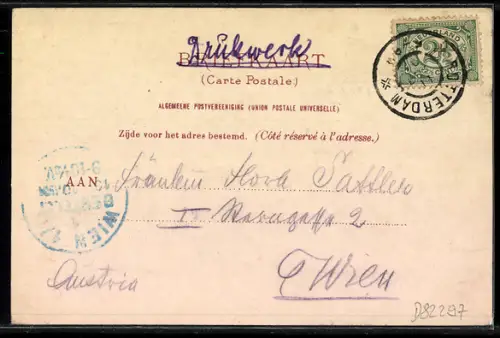 Drukwerk
BRIEFKAART
(Carte Postale)
ALGEMEENE POSTVEREENIGING (UNION POSTALE UNIVERSELLE)
Zijde voor het adres bestemd. (Côté réservé à l'adresse.)
ROTTERDAM
AAN
Fräulein Flora Sattler
2
Wien
Austria
WIEN
BESTELLT
D82297